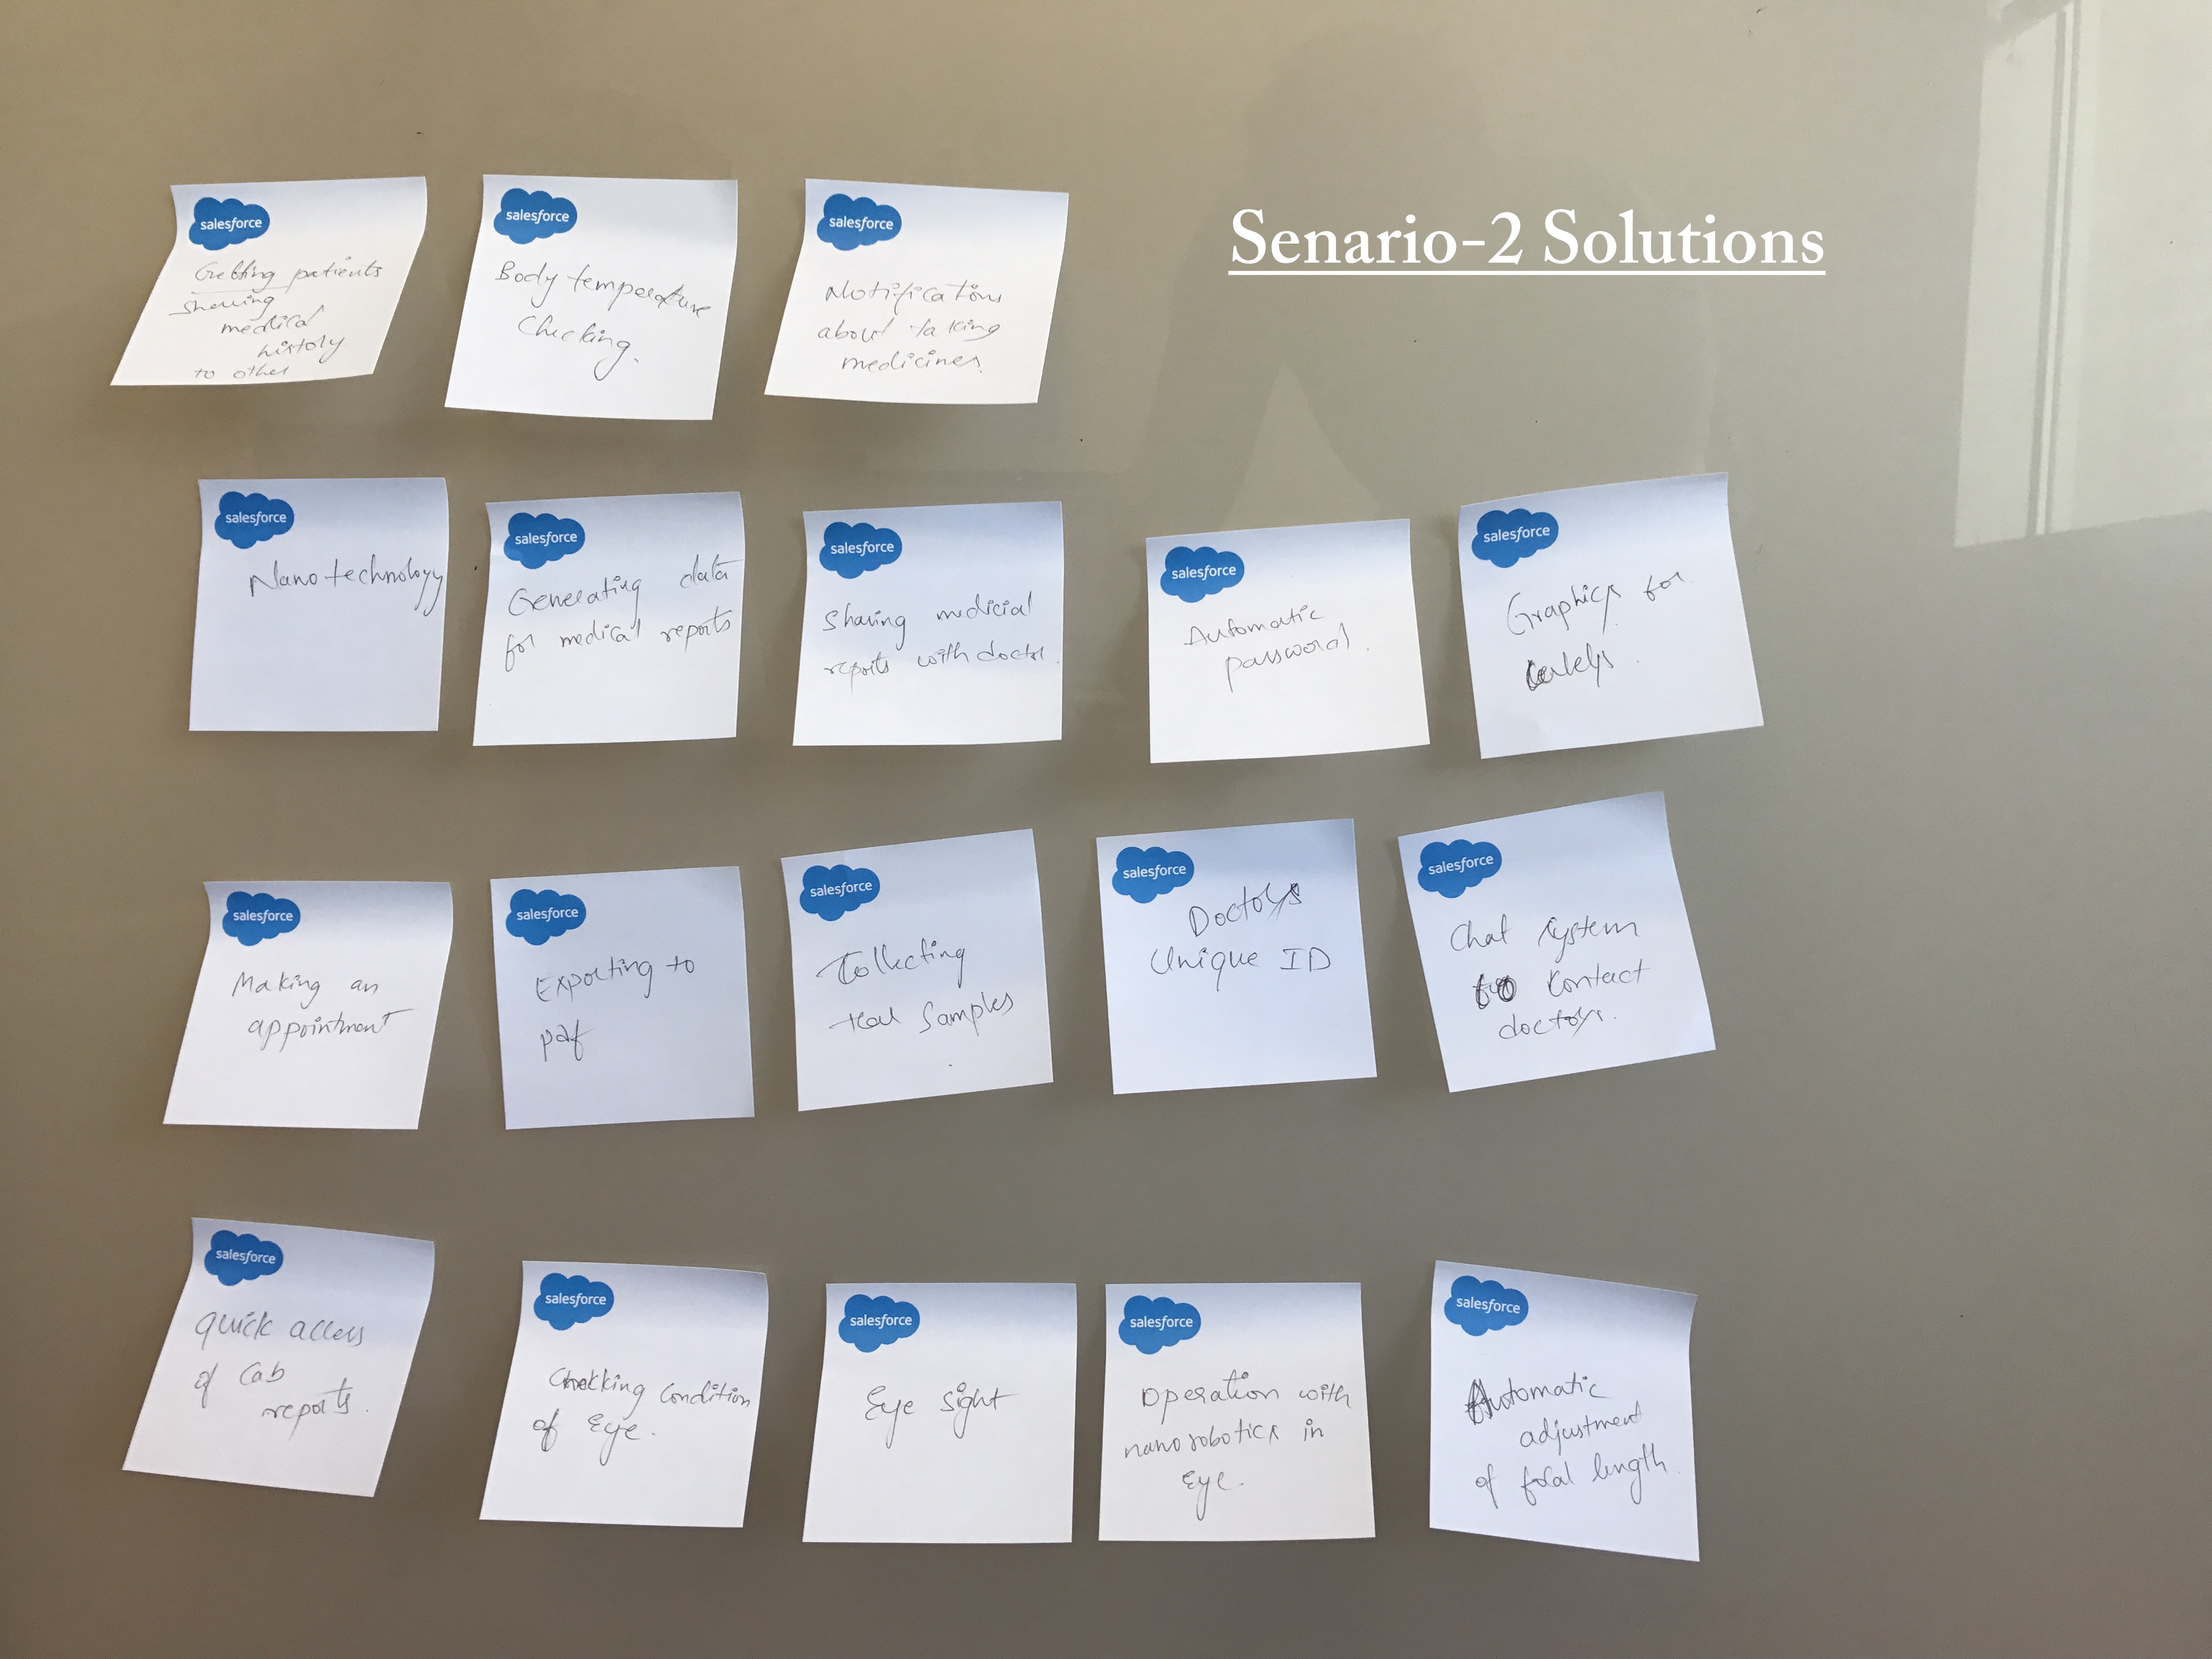 Senario-2 Solutions
salesforce
Getting patients
sharing
medical
history
to other
salesforce
Body temperature
Checking.
salesforce
Notifications
about taking
medicines.
salesforce
Nanotechnology
salesforce
Generating data
for medical reports
salesforce
Sharing medicial
reports with doctor.
salesforce
Automatic
password.
salesforce
Graphics for
salesforce
Making an
appointment
salesforce
Exporting to
pdf
salesforce
Collecting
Samples
salesforce
Doctors
Unique ID
salesforce
Chat system
to contact
doctors.
salesforce
quick access
of Cab
reports.
salesforce
Checking Condition
of Eye.
salesforce
Eye sight
salesforce
Operation with
nanorobotics in
Eye.
salesforce
Automatic
adjustment
of focal length.